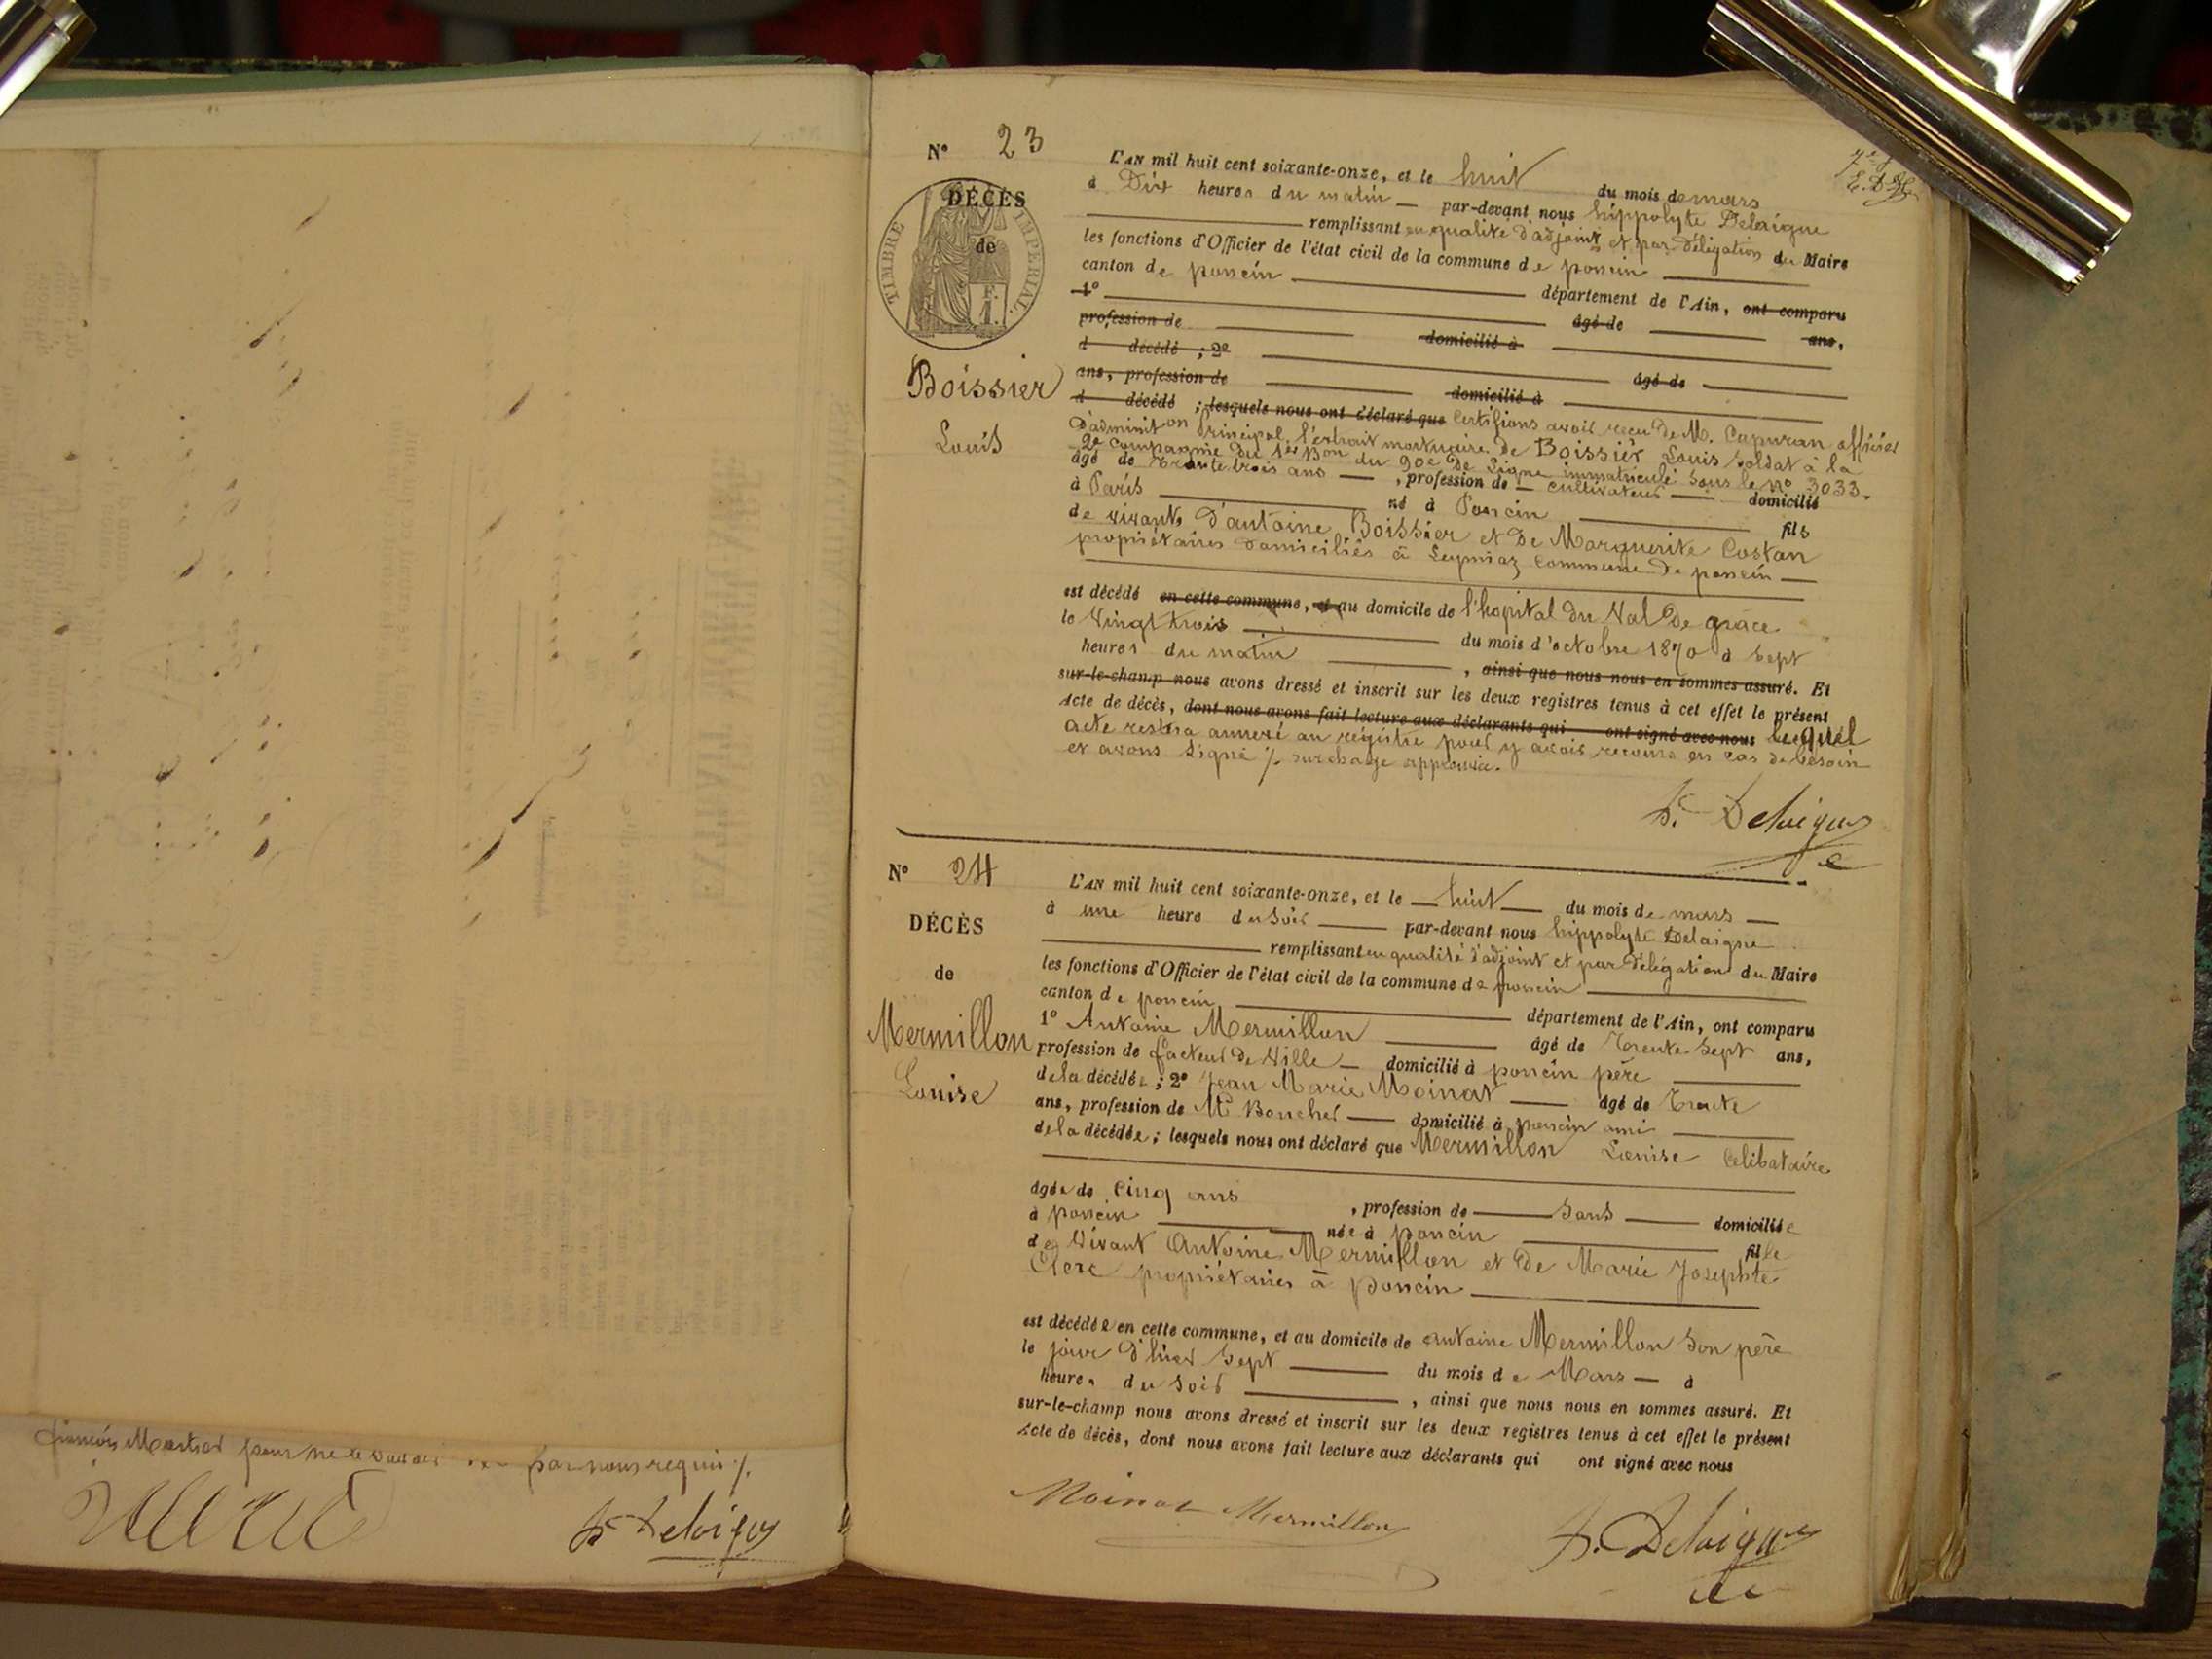 par nous requis ./.
H. Delaigue
N° 23
DÉCÈS
de
TIMBRE IMPERIAL
Boissier
Louis
L'AN mil huit cent soixante-onze, et le huit du mois de mars
à Dix heures du matin — par-devant nous hippolyte Delaigue
remplissant en qualité d'adjoint et par délégation du Maire
les fonctions d'Officier de l'état civil de la commune de poncin
canton de poncin département de l'Ain, ont comparu
1° âgé de ans,
profession de domicilié à
d décédé ; 2° âgé de
ans, profession de domicilié à
d décédé ; lesquels nous ont déclaré que Certifions avoir reçu de M. Capuran officier
d'administon principal, l'extrait mortuaire de Boissier Louis soldat à la
2e compagnie du 1er Bon du 90e de ligne immatriculé sous le no 3033.
âgé de trente trois ans — , profession de — cultivateur — domicilié
à Paris né à Poncin fils
de vivants d'antoine Boissier et de Marguerite Costan
propriétaires domiciliés à Leymiaz commune de poncin —
est décédé en cette commune, et au domicile de l'hopital du Val de grâce
le Vingt trois du mois d'octobre 1870 à Sept
heures du matin , ainsi que nous nous en sommes assuré. Et
sur-le-champ nous avons dressé et inscrit sur les deux registres tenus à cet effet le présent
acte de décès, dont nous avons fait lecture aux déclarants qui ont signé avec nous lequel
acte restera annexé au registre pour y avoir recours en cas de besoin
et avons signé ./. surcharge approuvée.
H. Delaigue
N° 24
DÉCÈS
de
Mermillon
Louise
L'AN mil huit cent soixante-onze, et le — huit — du mois de mars —
à une heure du soir — par-devant nous hippolyte Delaigue
remplissant en qualité d'adjoint et par délégation du Maire
les fonctions d'Officier de l'état civil de la commune de poncin
canton de poncin département de l'Ain, ont comparu
1° Antoine Mermillon âgé de Trente Sept ans,
profession de facteur de Ville — domicilié à poncin père
de la décédée ; 2° Jean Marie Moinat — âgé de Trente
ans, profession de Md Boucher — domicilié à poncin ami
de la décédée ; lesquels nous ont déclaré que Mermillon Louise Celibataire
âgée de cinq ans , profession de — Sans — domiciliée
à poncin née à poncin fille
de Vivant Antoine Mermillon et de Marie Josephte
Clerc propriétaires à poncin
est décédée en cette commune, et au domicile de antoine Mermillon Son père
le jour d'hier Sept — du mois de Mars — à
heures du soir , ainsi que nous nous en sommes assuré. Et
sur-le-champ nous avons dressé et inscrit sur les deux registres tenus à cet effet le présent
acte de décès, dont nous avons fait lecture aux déclarants qui ont signé avec nous
Moinat Mermillon
H. Delaigue